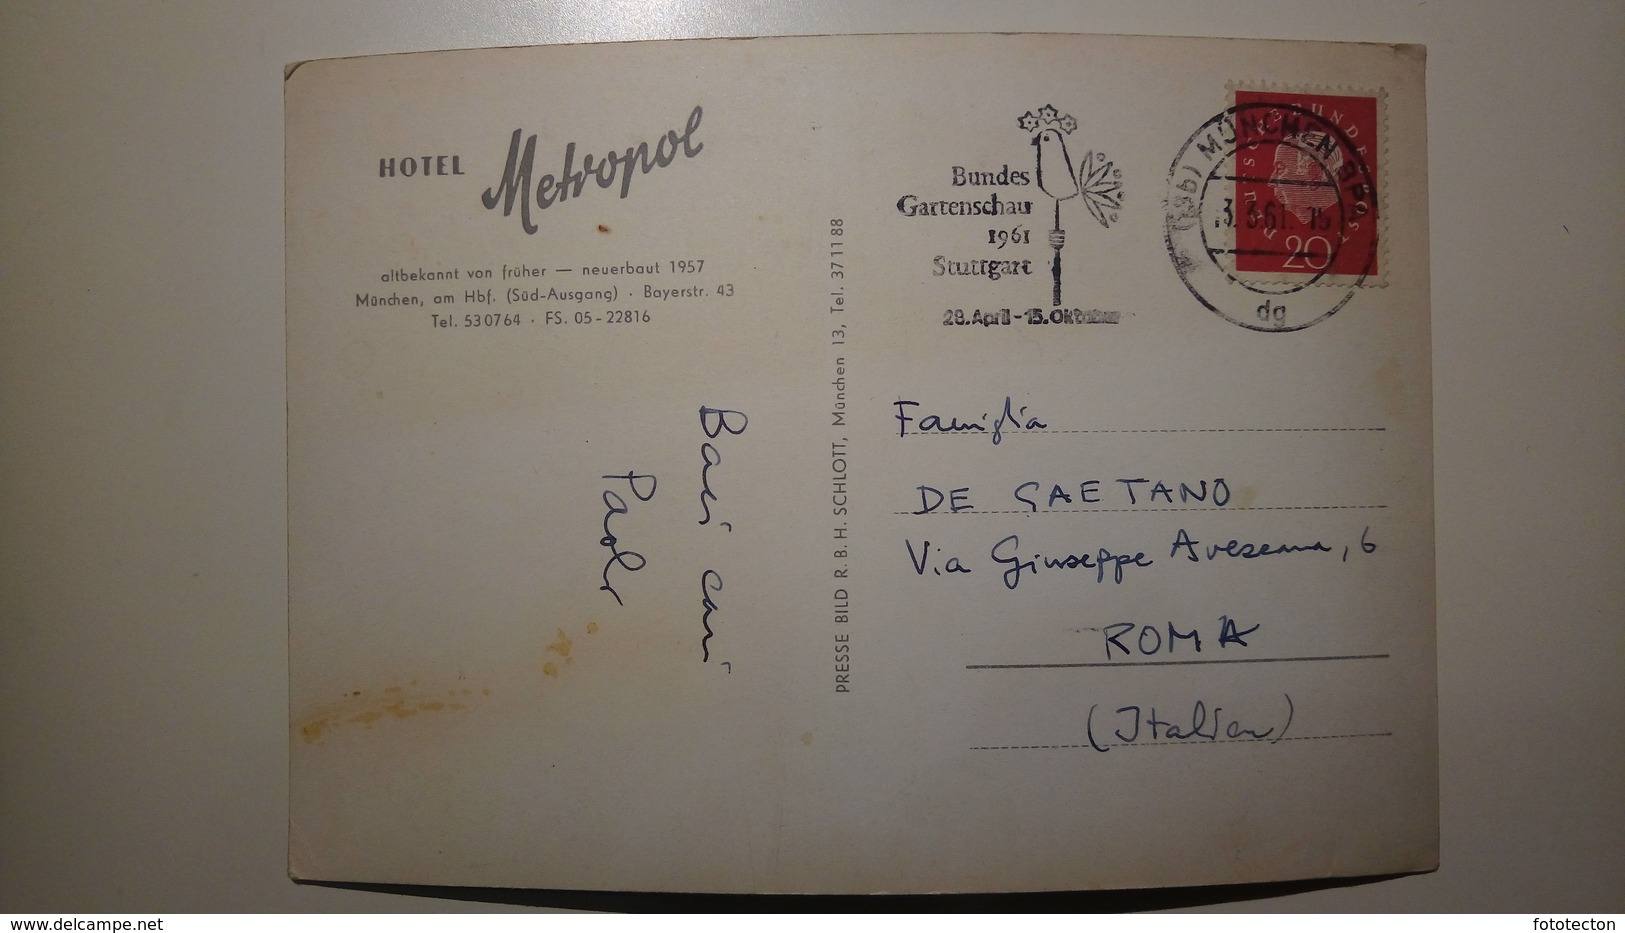 HOTEL Metropol
altbekannt von früher — neuerbaut 1957
München, am Hbf. (Süd-Ausgang) · Bayerstr. 43
Tel. 530764 · FS. 05-22816
Baci cari
Paolo
PRESSE BILD R. B. H. SCHLOTT, München 13, Tel. 371188
Bundes
Gartenschau
1961
Stuttgart
28. April - 15. Oktober
(13b) MÜNCHEN BP
3.61.
dg
DEUTSCHE BUNDESPOST
20
Famiglia
DE GAETANO
Via Giuseppe Avezzana, 6
ROMA
(Italien)
www.delcampe.net
fototecton